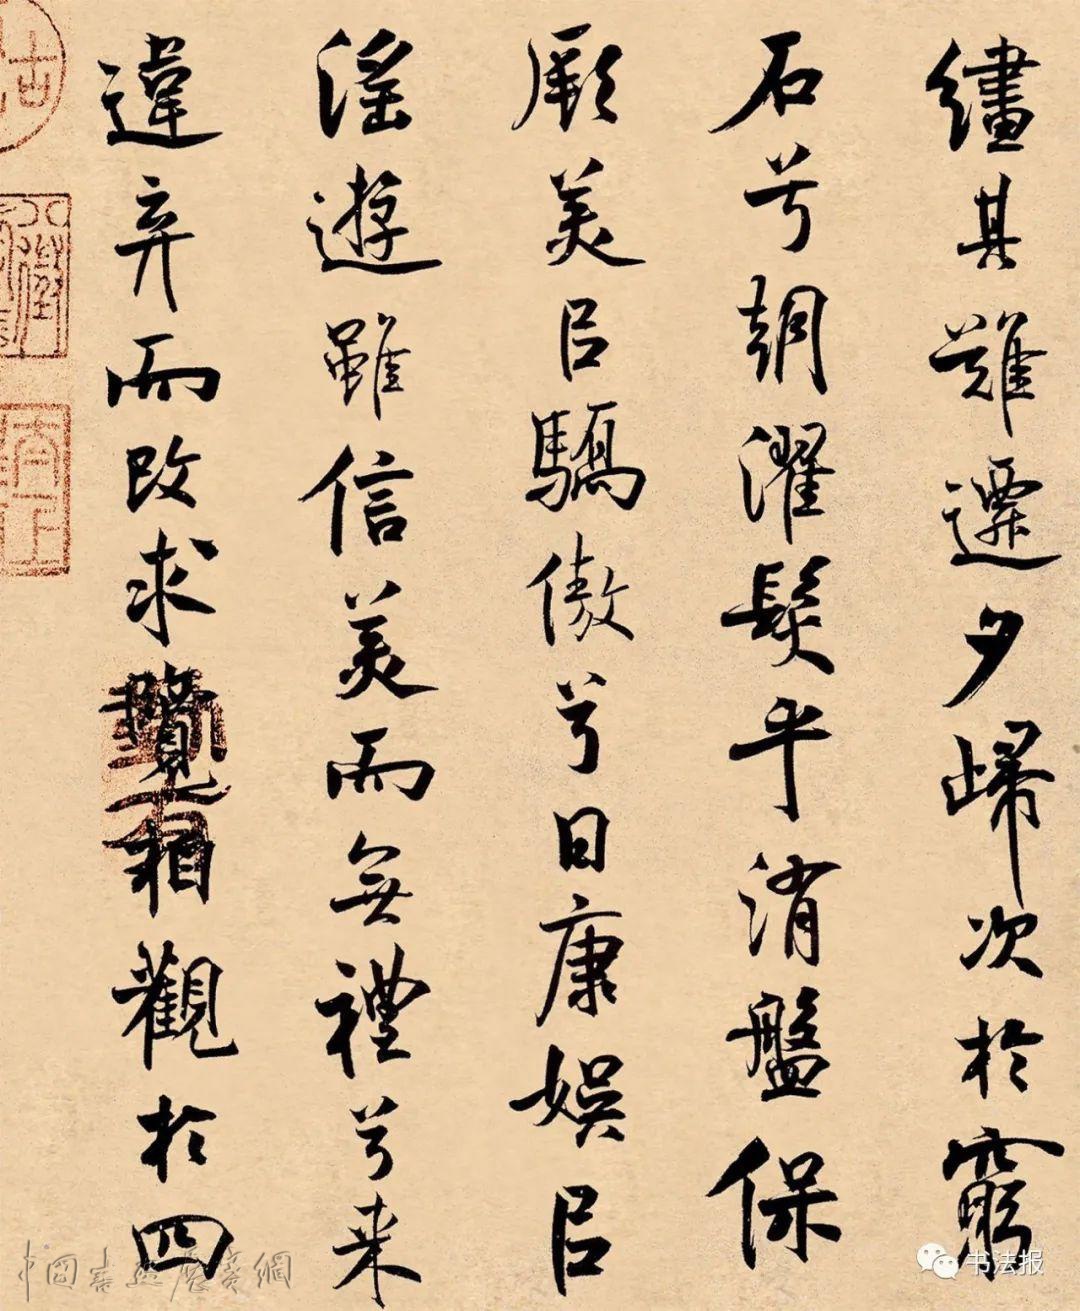 繣其難遷夕歸次於窮
石兮朝濯髮乎洧盤保
厥美㠯驕傲兮日康娛㠯
淫遊雖信美而無禮兮来
違弃而改求覽相觀於四
中國書法展賽網
书法报